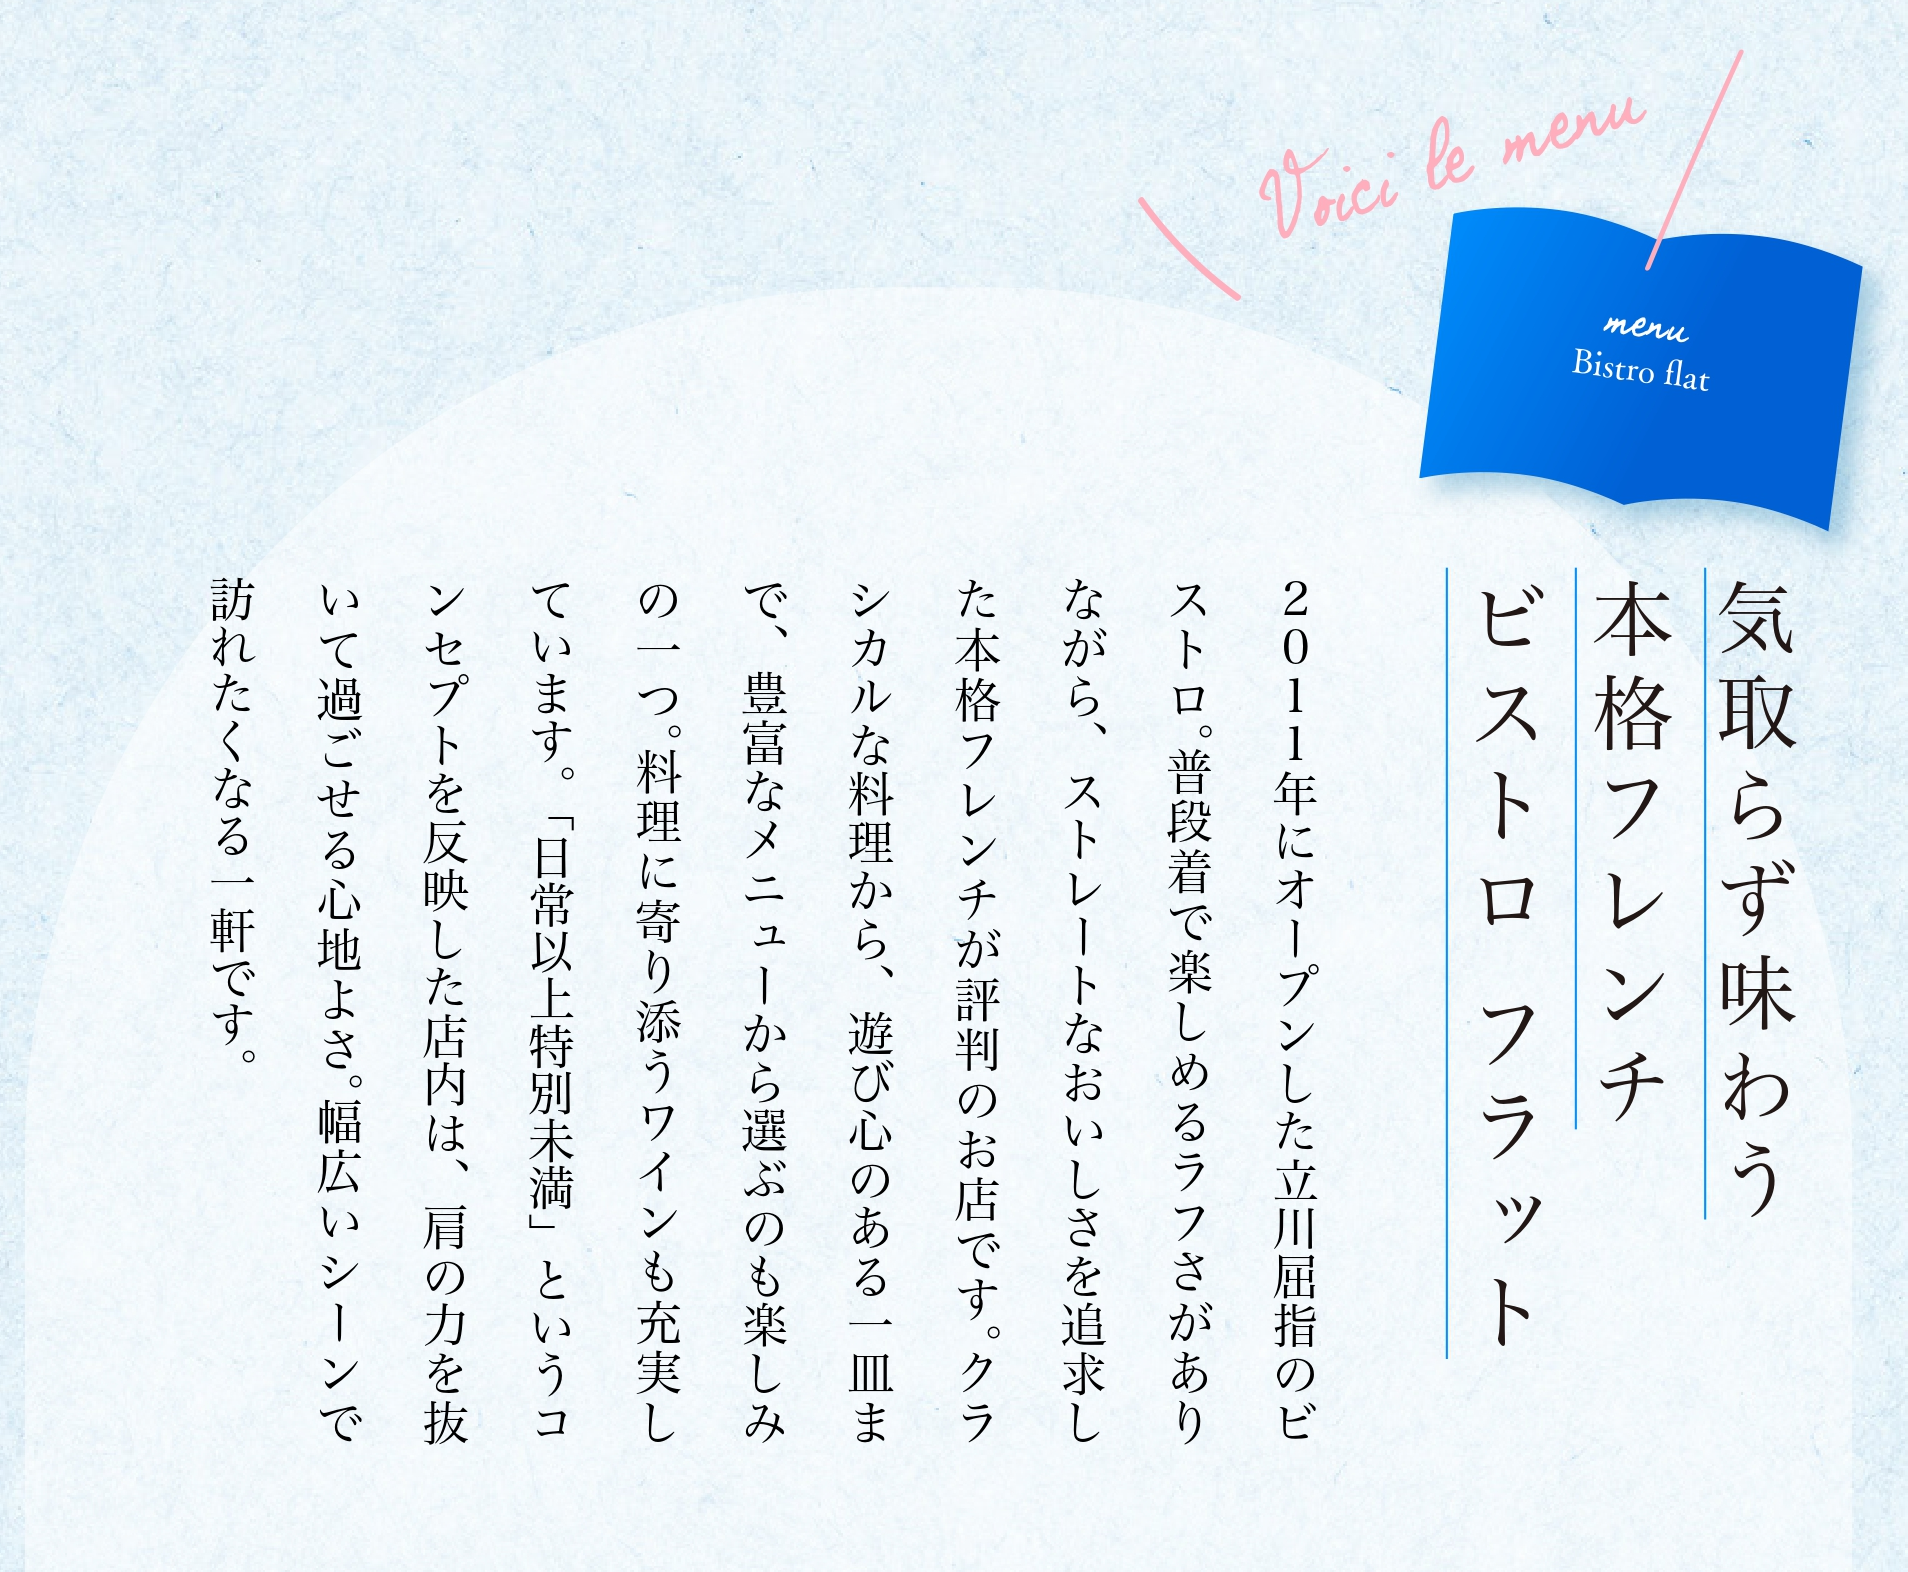 Voici le menu
menu
Bistro flat
気取らず味わう
本格フレンチ
ビストロ フラット
2011年にオープンした立川屈指のビ
ストロ。普段着で楽しめるラフさがあり
ながら、ストレートなおいしさを追求し
た本格フレンチが評判のお店です。クラ
シカルな料理から、遊び心のある一皿ま
で、豊富なメニューから選ぶのも楽しみ
の一つ。料理に寄り添うワインも充実し
ています。「日常以上特別未満」というコ
ンセプトを反映した店内は、肩の力を抜
いて過ごせる心地よさ。幅広いシーンで
訪れたくなる一軒です。